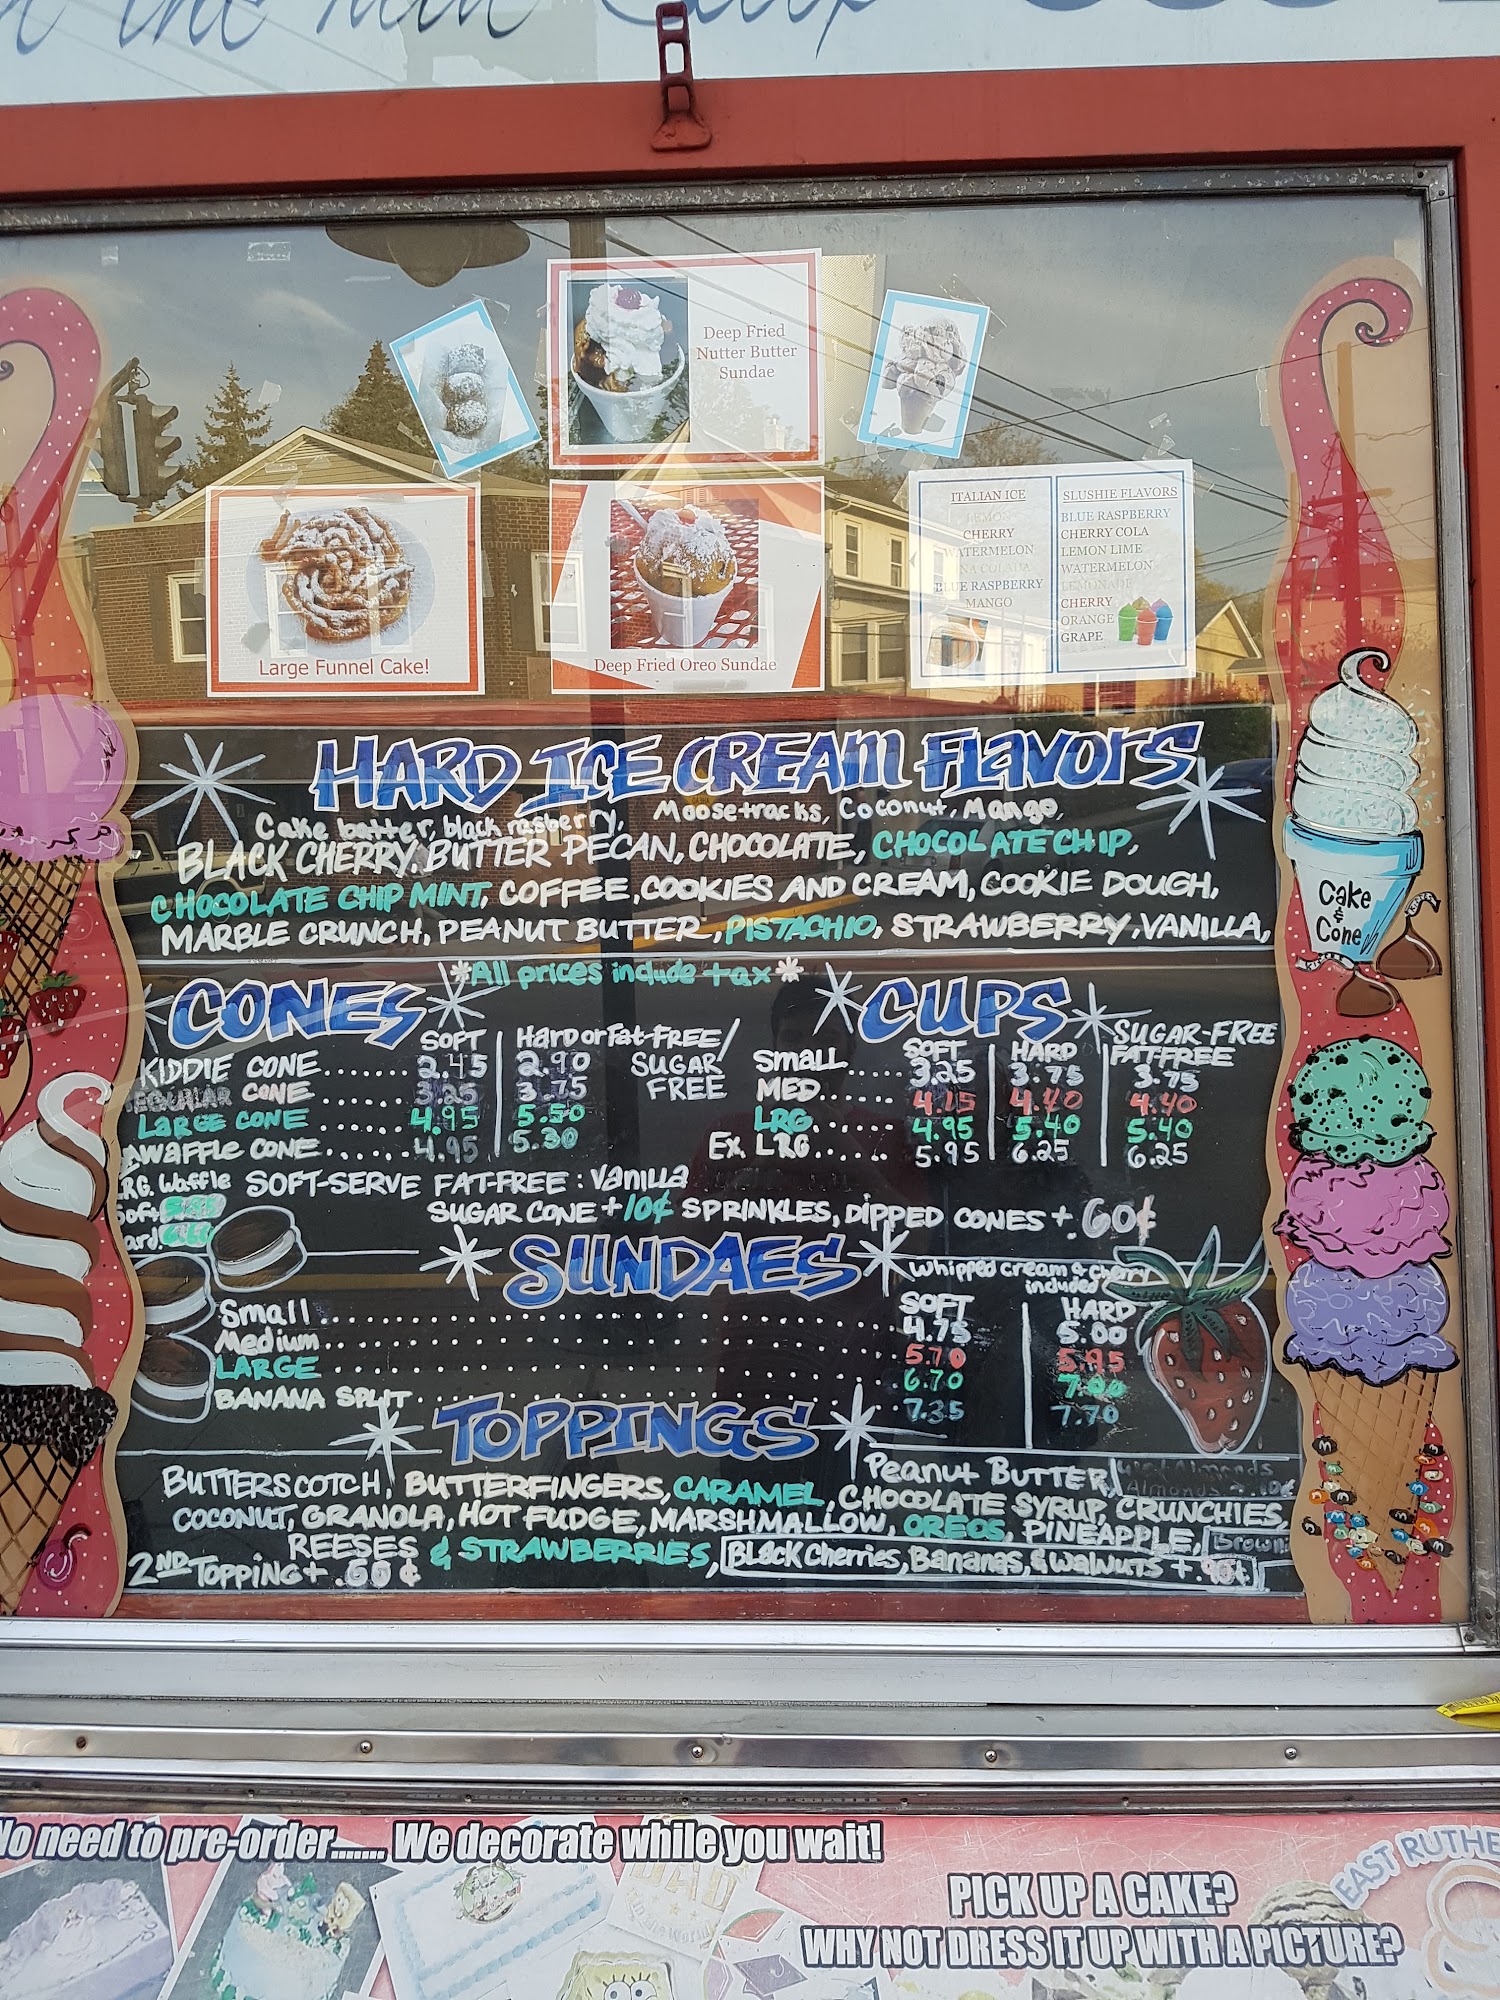 Deep Fried
Nutter Butter
Sundae
Large Funnel Cake!
Deep Fried Oreo Sundae
ITALIAN ICE
LEMON
CHERRY
WATERMELON
COLADA
BLUE RASPBERRY
MANGO
SLUSHIE FLAVORS
BLUE RASPBERRY
CHERRY COLA
LEMON LIME
WATERMELON
LEMONADE
CHERRY
ORANGE
GRAPE
HARD ICE CREAM FLAVORS
Cake batter, black rasberry, Moosetracks, Coconut, Mango,
BLACK CHERRY, BUTTER PECAN, CHOCOLATE, CHOCOLATE CHIP,
CHOCOLATE CHIP MINT, COFFEE, COOKIES AND CREAM, COOKIE DOUGH,
MARBLE CRUNCH, PEANUT BUTTER, PISTACHIO, STRAWBERRY, VANILLA,
*All prices include tax*
CONES
SOFT Hard or Fat-FREE/ SUGAR FREE
KIDDIE CONE...... 2.45 2.90
REGULAR CONE ...... 3.25 3.75
LARGE CONE ...... 4.95 5.50
WAFFLE CONE...... 4.95 5.30
LRG. Waffle
Soft
Hard
SOFT-SERVE FAT-FREE: Vanilla
SUGAR CONE + 10¢ SPRINKLES, DIPPED CONES + .60¢
CUPS
SOFT HARD SUGAR-FREE FAT-FREE
Small..... 3.25 3.75 3.75
MED...... 4.15 4.40 4.40
LRG...... 4.95 5.40 5.40
Ex. LRG..... 5.95 6.25 6.25
SUNDAES
Whipped cream & cherry included
SOFT HARD
Small 4.75 5.00
Medium 5.70 5.95
LARGE 6.70 7.00
BANANA SPLIT 7.35 7.70
TOPPINGS
BUTTERSCOTCH, BUTTERFINGERS, CARAMEL, Peanut BUTTER,
COCONUT, GRANOLA, HOT FUDGE, MARSHMALLOW, CHOCOLATE SYRUP, CRUNCHIES,
OREOS, PINEAPPLE,
REESES & STRAWBERRIES, Black Cherries, Bananas, & Walnuts + .90¢
Brown
2ND TOPPING + .60¢
Cake
&
Cone
No need to pre-order....... We decorate while you wait!
PICK UP A CAKE?
WHY NOT DRESS IT UP WITH A PICTURE?
EAST RUTHE